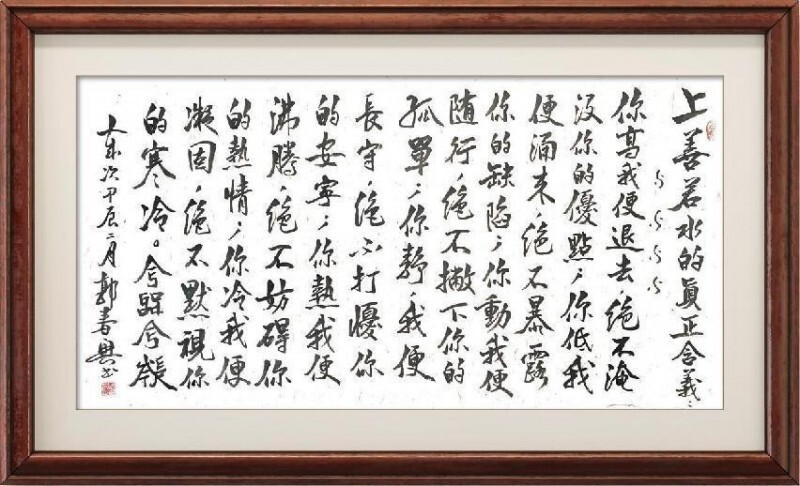 上善若水的真正含義:
你高我便退去絕不淹
沒你的優點;你低我
便涌来,絕不暴露
你的缺陷;你動我便
随行,絕不撇下你的
孤單;你靜,我便
長守,絕不打擾你
的安寧;你熱我便
沸騰,絕不妨碍你
的熱情;你冷我便
凝固,絕不默視你
的寒冷。
次甲辰二月郭春興書